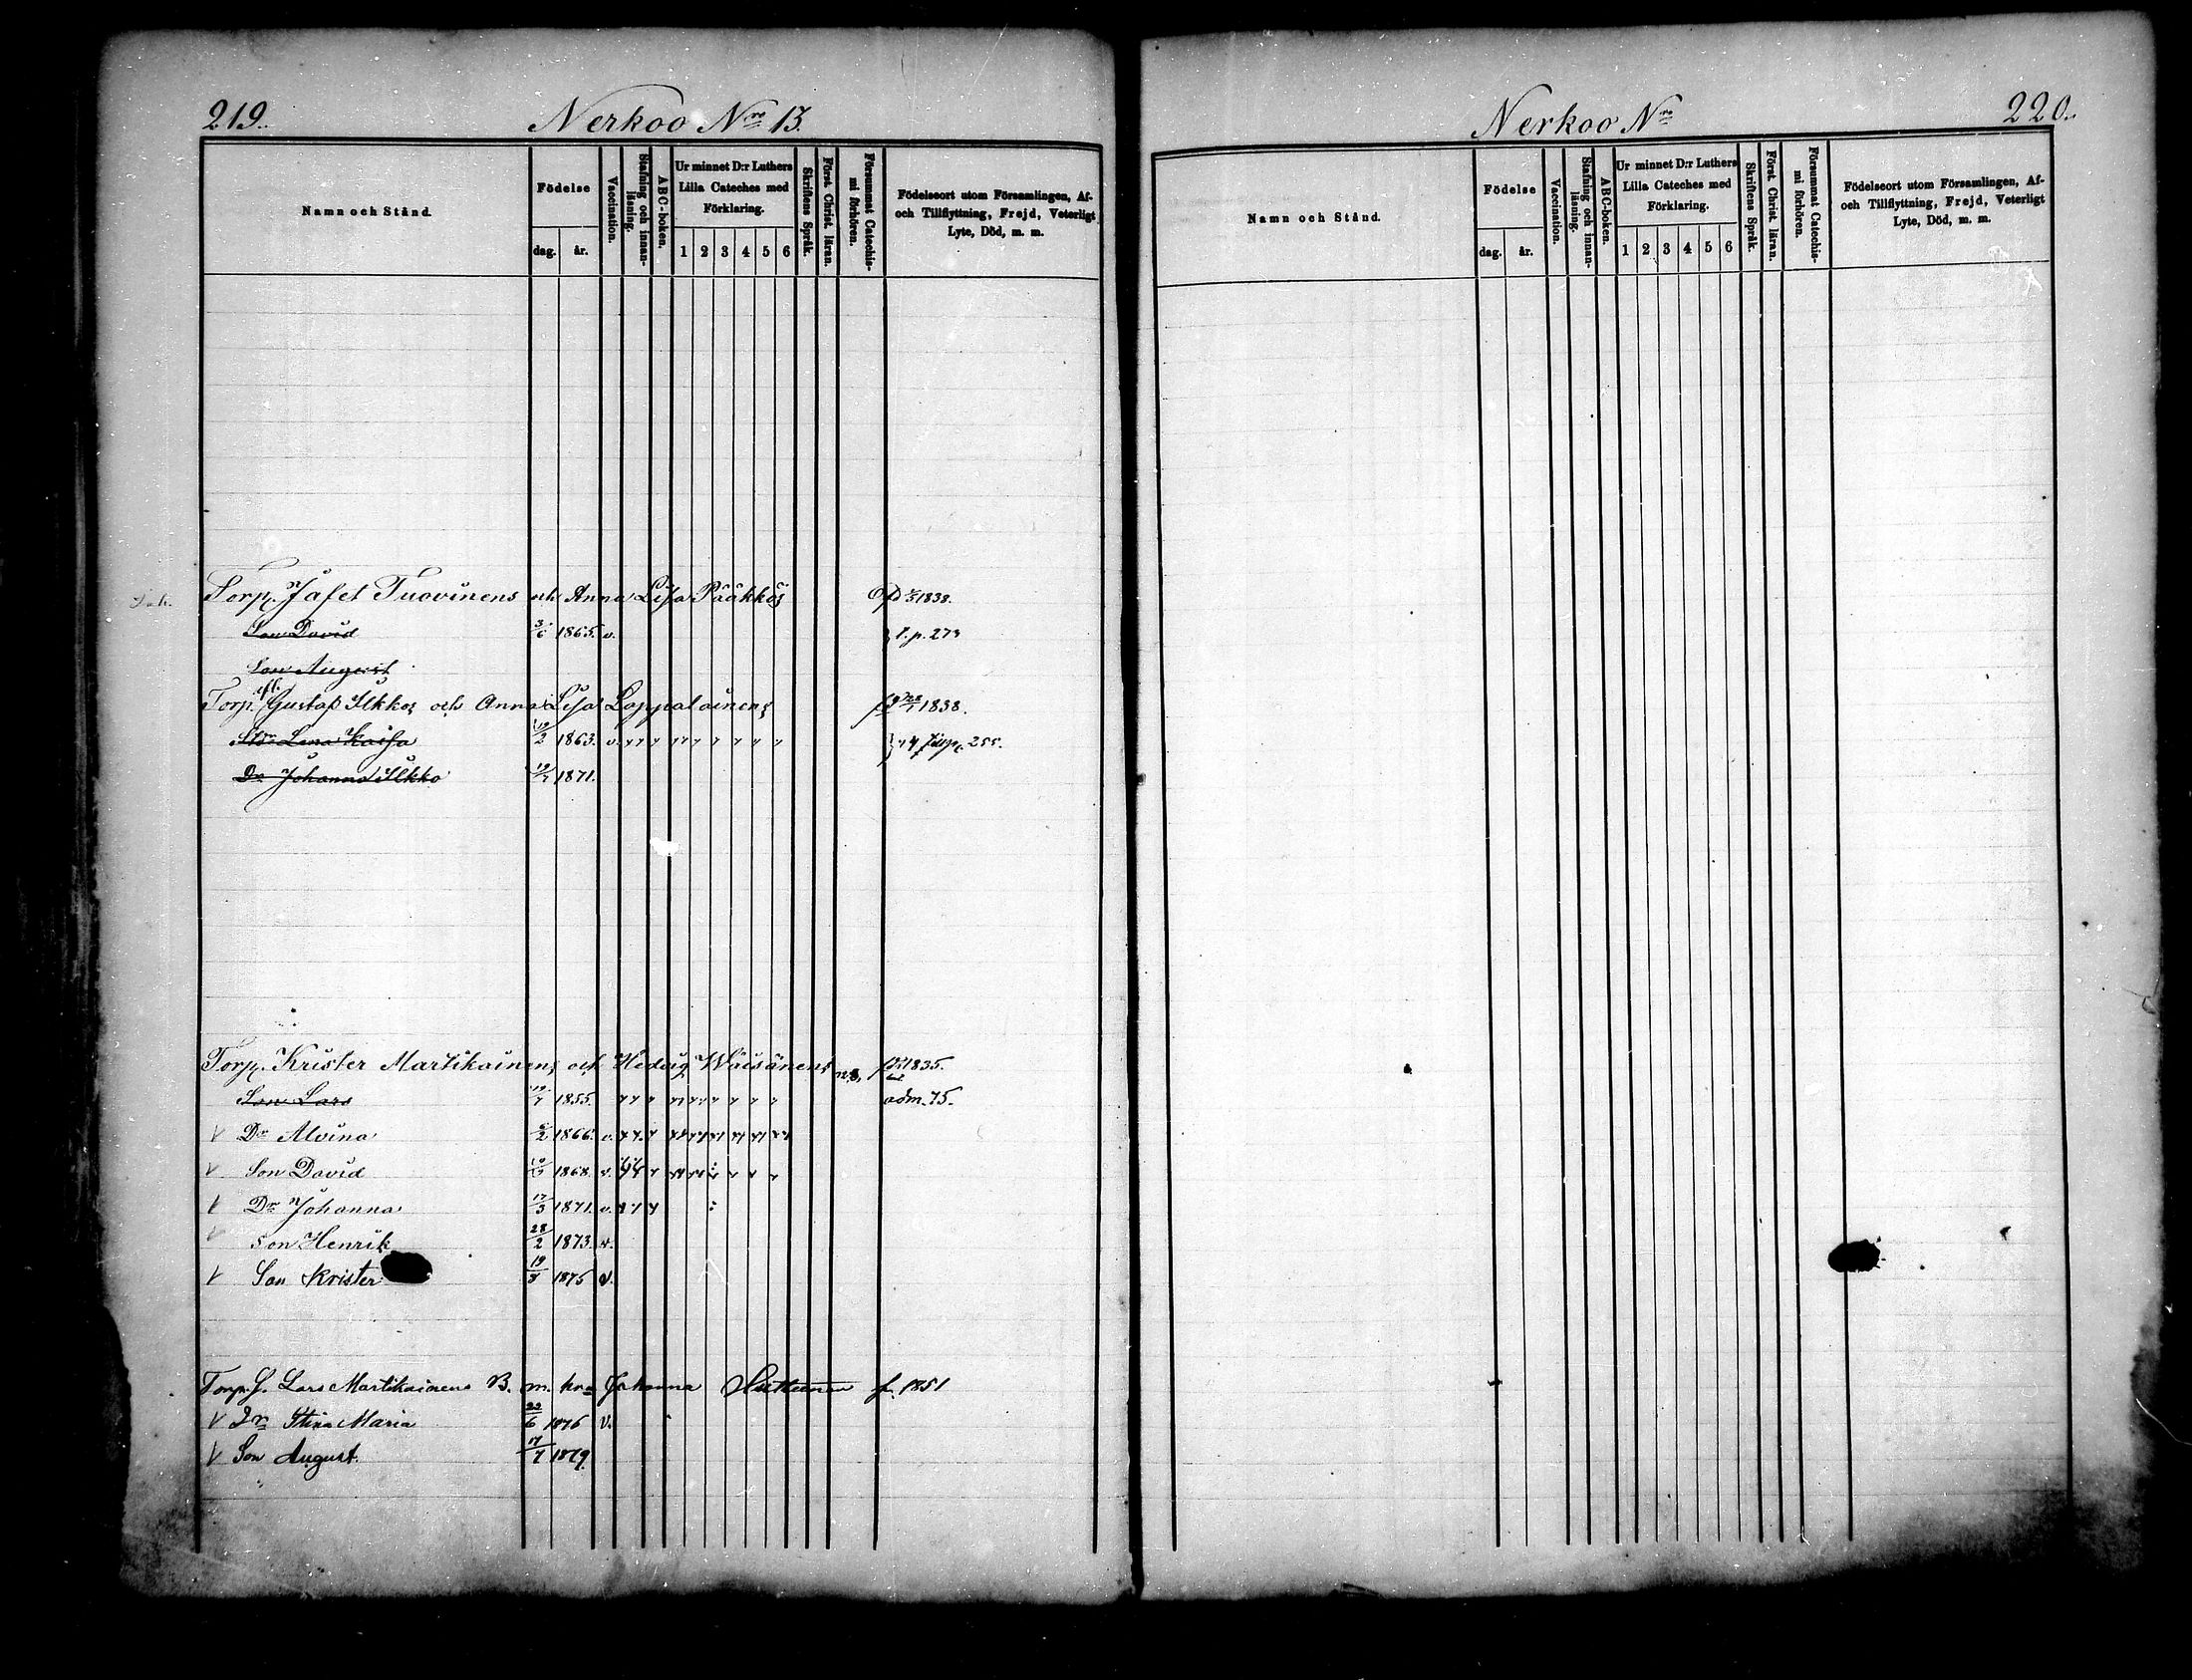 219. Nerkoo Nro 13.
Namn och Stånd.
Födelse
dag. år.
Vaccination.
Stafning och innanläsning.
ABC-boken.
Ur minnet D:r Luthers Lilla Cateches med Förklaring.
1 2 3 4 5 6
Skriftens Språk.
Först. Christ. läran.
Försummat Catechismi förhören.
Födelseort utom Församlingen, Af- och Tillflyttning, Frejd, Veterligt Lyte, Död, m. m.
Torp. Jafet Tuovinens och Anna Lisa Pääkkös 1838.
Son David 3/6 1865. v. t. p. 273
Son August
Torp. Gustaf Ilkkos och Anna Lisa Lappalainens 1838.
Lena Kaisa 1863. v. 255.
Dr Johanna Ilkko 1871.
Torp. Krister Martikainens och Hedvig Wäisänens 1835.
Son Lars 1855. adm. 75.
Dr Alvina 1866. v.
Son David 1868. v.
Dr Johanna 17/3 1871. v.
Son Henrik 28/2 1873. v.
Son Krister 1875 v.
Torp. Lars Martikainens B. m. hru Johanna f. 1851
V Dr Stina Maria 22/6 1876 v.
V Son August. 17/7 1879.
Nerkoo Nro 220.
Namn och Stånd.
Födelse
dag. år.
Vaccination.
Stafning och innanläsning.
ABC-boken.
Ur minnet D:r Luthers Lilla Cateches med Förklaring.
1 2 3 4 5 6
Skriftens Språk.
Först. Christ. läran.
Försummat Catechismi förhören.
Födelseort utom Församlingen, Af- och Tillflyttning, Frejd, Veterligt Lyte, Död, m. m.